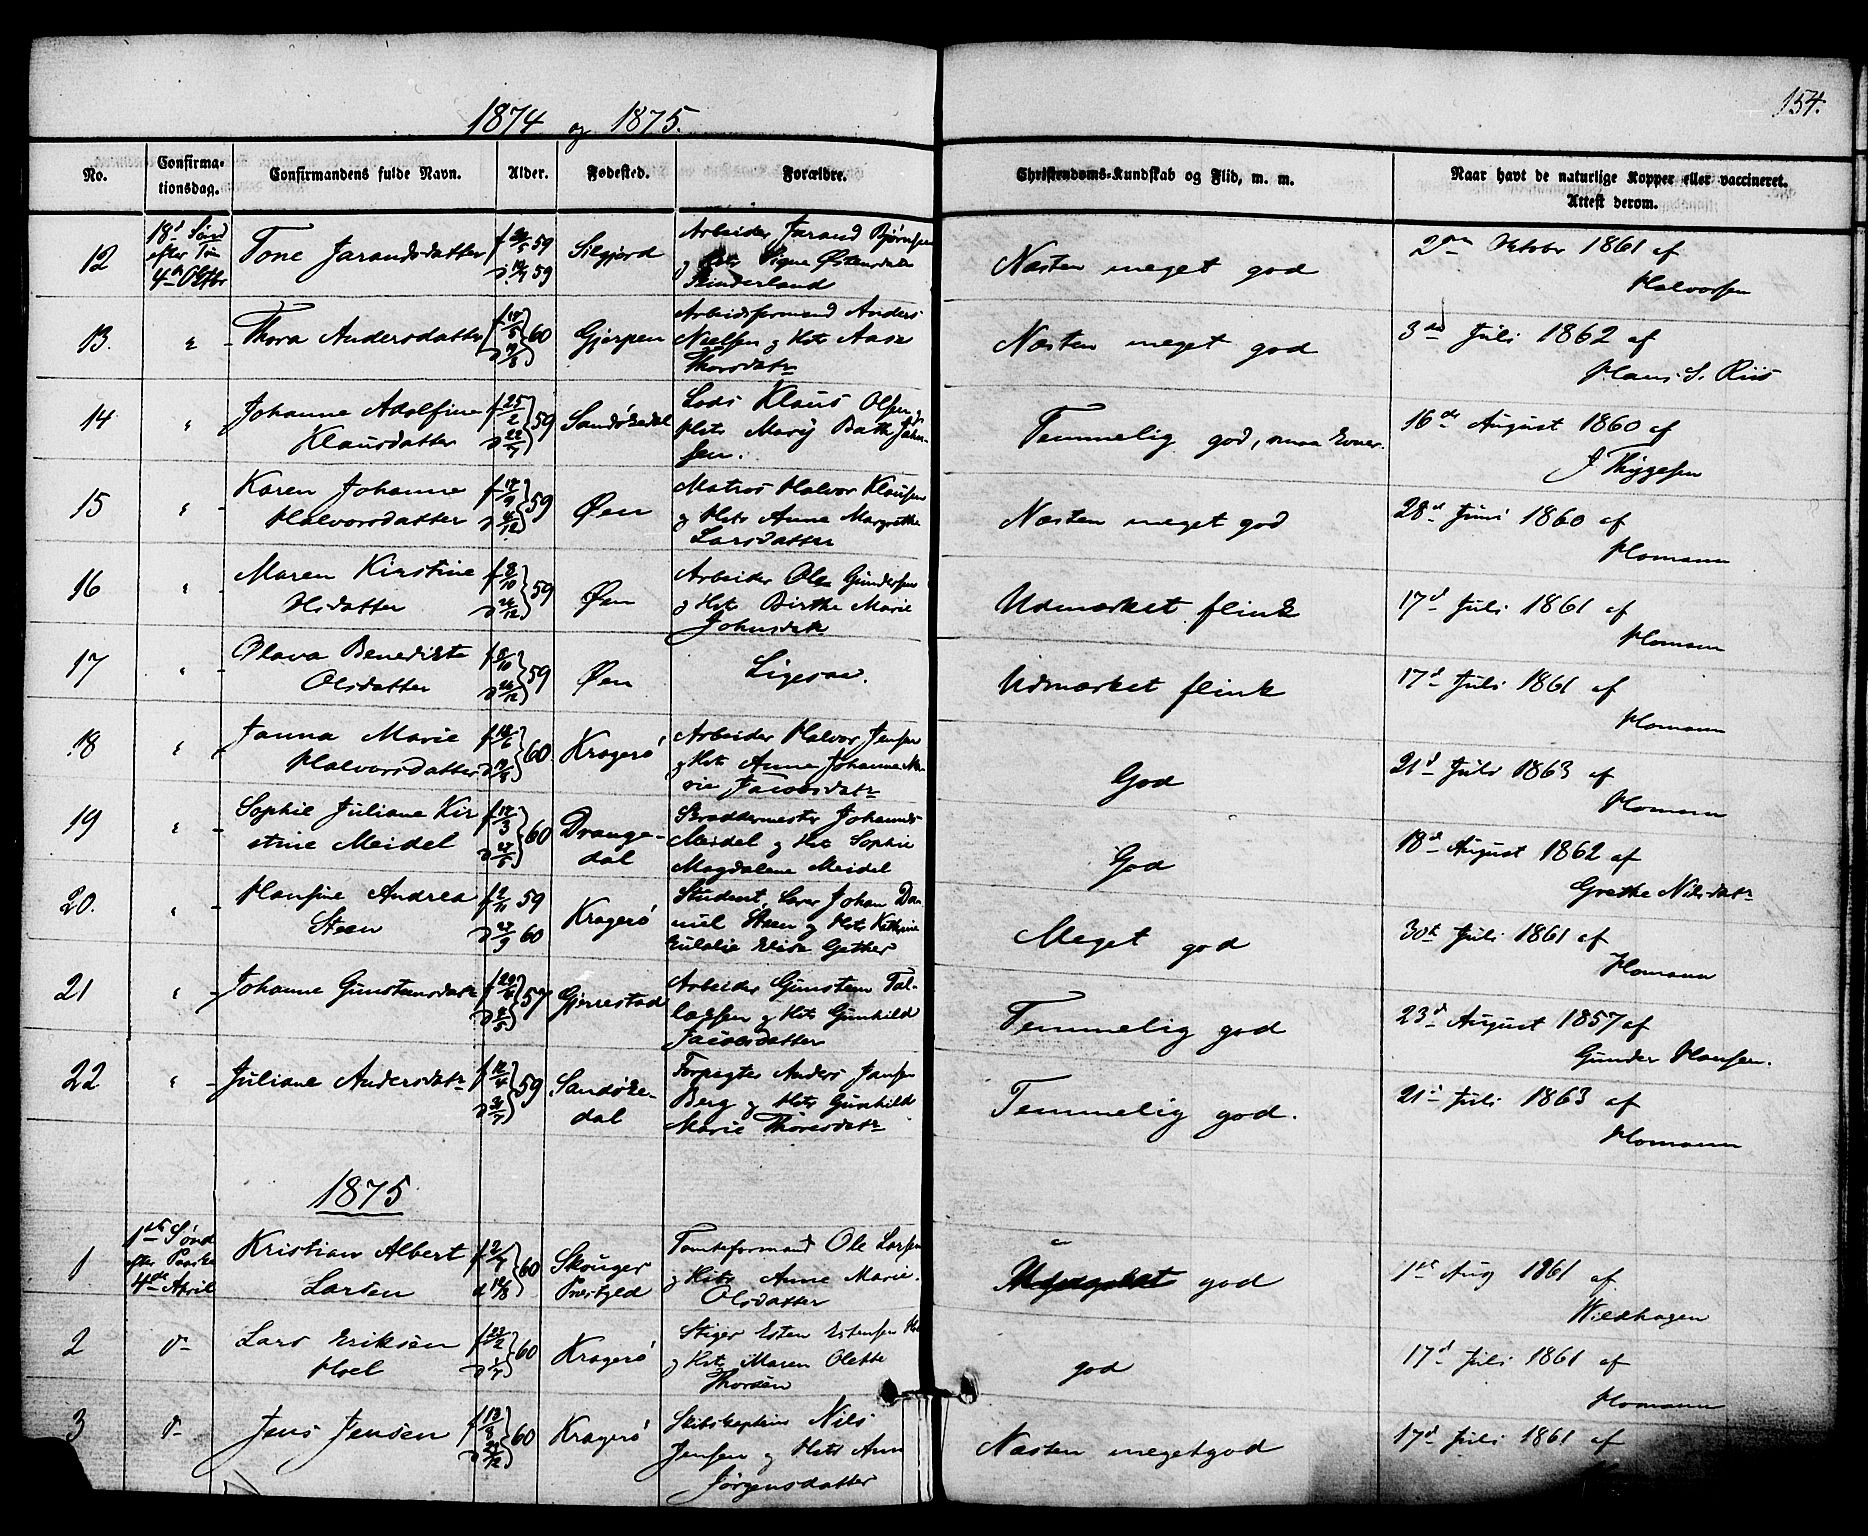 1874 og 1875.
154.
No.
Confirma-
tionsdag.
Confirmandens fulde Navn.
Alder.
Fødested.
Forældre.
Christendoms-Kundskab og Flid, m. m.
Naar havt de naturlige Kopper eller vaccineret.
Attest derom.
12
18d Sønd
efter Tr.
4de Oktbr
Tone Jarandsdatter
59
59
Silgjord
Arbeider Jarand Bjørnsen
og Hstr Signe
Næsten meget god
2den Oktober 1861 af
Halvorsen
13.
"
Thora Andersdatter
60
Gjerpen
Arbeidsformand Anders
Nielsen og Hstr Aase
Thorsdatr
Næsten meget god
3die Juli 1862 af
Hans S. Riis
14
"
Johanne Adolfine
Klausdatter
f 25/2
d 22/7
59
Sandøkedal
Lods Klaus Olsen og
Hstr Mary Bathe John-
sen.
Temmelig god, smaa Evner.
16de August 1860 af
J Thygesen
15
"
Karen Johanne
Halvorsdatter
59
Øen
Matros Halvor Klausen
og Hstr Anne Margrethe
Larsdatter
Næsten meget god
28de Juni 1860 af
Homann
16
"
Maren Kirstine
Olsdatter
59
Øen
Arbeider Ole Gundersen
og Hstr Birthe Marie
Johnsdatr
Udmærket flink
17de Juli 1861 af
Homann
17
"
Olava Benedikte
Olsdatter
59
Øen
Ligesaa.
Udmærket flink
17de Juli 1861 af
Homann
18
"
Janna Marie
Halvorsdatter
60
Kragerö
Arbeider Halvor Jensen
og Hstr Anne Johanne Ma-
rie Jacobsdatr
God
21de Juli 1863 af
Homann
19
"
Sophie Juliane Kir
stine Meidel
60
Drange-
dal
Skræddermester Johannes
Meidel og Hstr Sophie
Magdalene Meidel
God
18de August 1862 af
Grethe Nilsdatr
20.
"
Hansine Andrea
Steen
f 2/11 59
d 27/9 60
Kragerö
Student, Lærer Johan Da-
niel Steen og Hstr Kathrine
Eulalie Elise Gether
Meget god
30te Juli 1861 af
Homann
21
"
Johanne Gunstensdatr
57
Gjerrestad
Arbeider Gunsten Tal-
laksen og Hstr Gunhild
Jacobsdatter
Temmelig god
23de August 1857 af
Gunder Hansen.
22
"
Juliane Andersdatr
59
Sandøke-
dal
Forpagter Anders Jansen
Berg og Hstr Gunhild
Marie Thoresdatr
Temmelig god.
21de Juli 1863 af
Homann
1875
1
1ste Sønd
efter Paaske
4de April
Kristian Albert
Larsen
60
Skouger
Præstgjeld
Tomteformand Ole Larsen
og Hstr Anne Marie
Olsdatter
god
1ste Aug 1861 af
Wildhagen
2
d
Lars Eriksen
Hoel
60
Kragerö
Stiger Esten Estensen
og Hstr Maren Olette
Thorsen
god
17de Juli 1861 af
Homann
3
d
Jens Jensen
60
Kragerö
Skibskaptein Nils
Jensen og Hstr Ann
Jörgensdatter
Næsten megetgod
17de Juli 1861 af